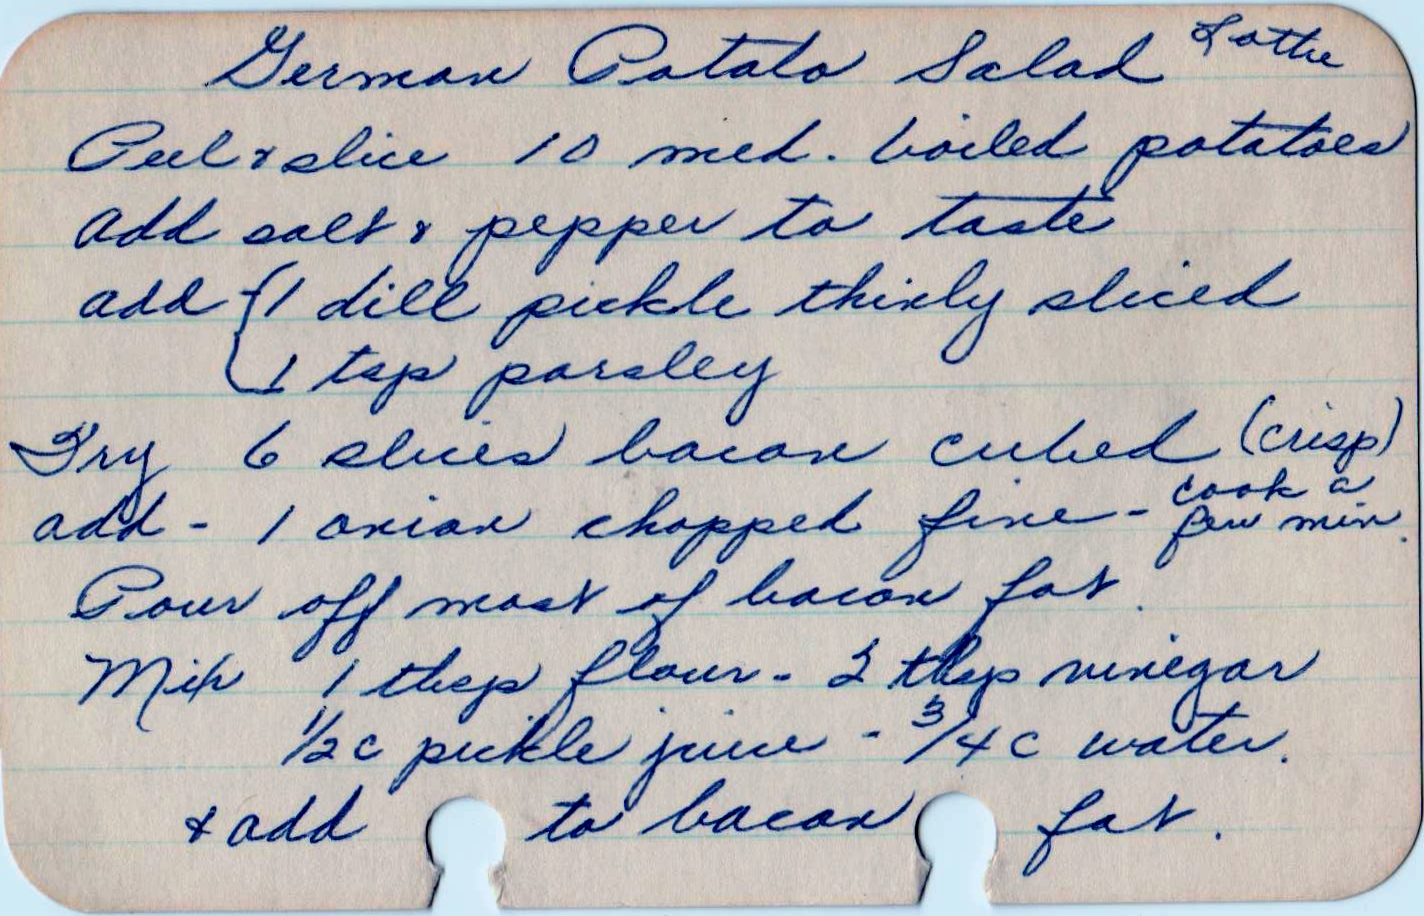 German Potato Salad Lottie
Peel & slice 10 med. boiled potatoes
add salt & pepper to taste
add { 1 dill pickle thinly sliced
1 tsp parsley
Fry 6 slices bacon cubed (crisp)
add - 1 onion chopped fine - cook a few min.
Pour off most of bacon fat.
Mix 1 tbsp flour - 2 tbsp vinegar
1/2 c pickle juice - 3/4 c water.
& add to bacon fat.